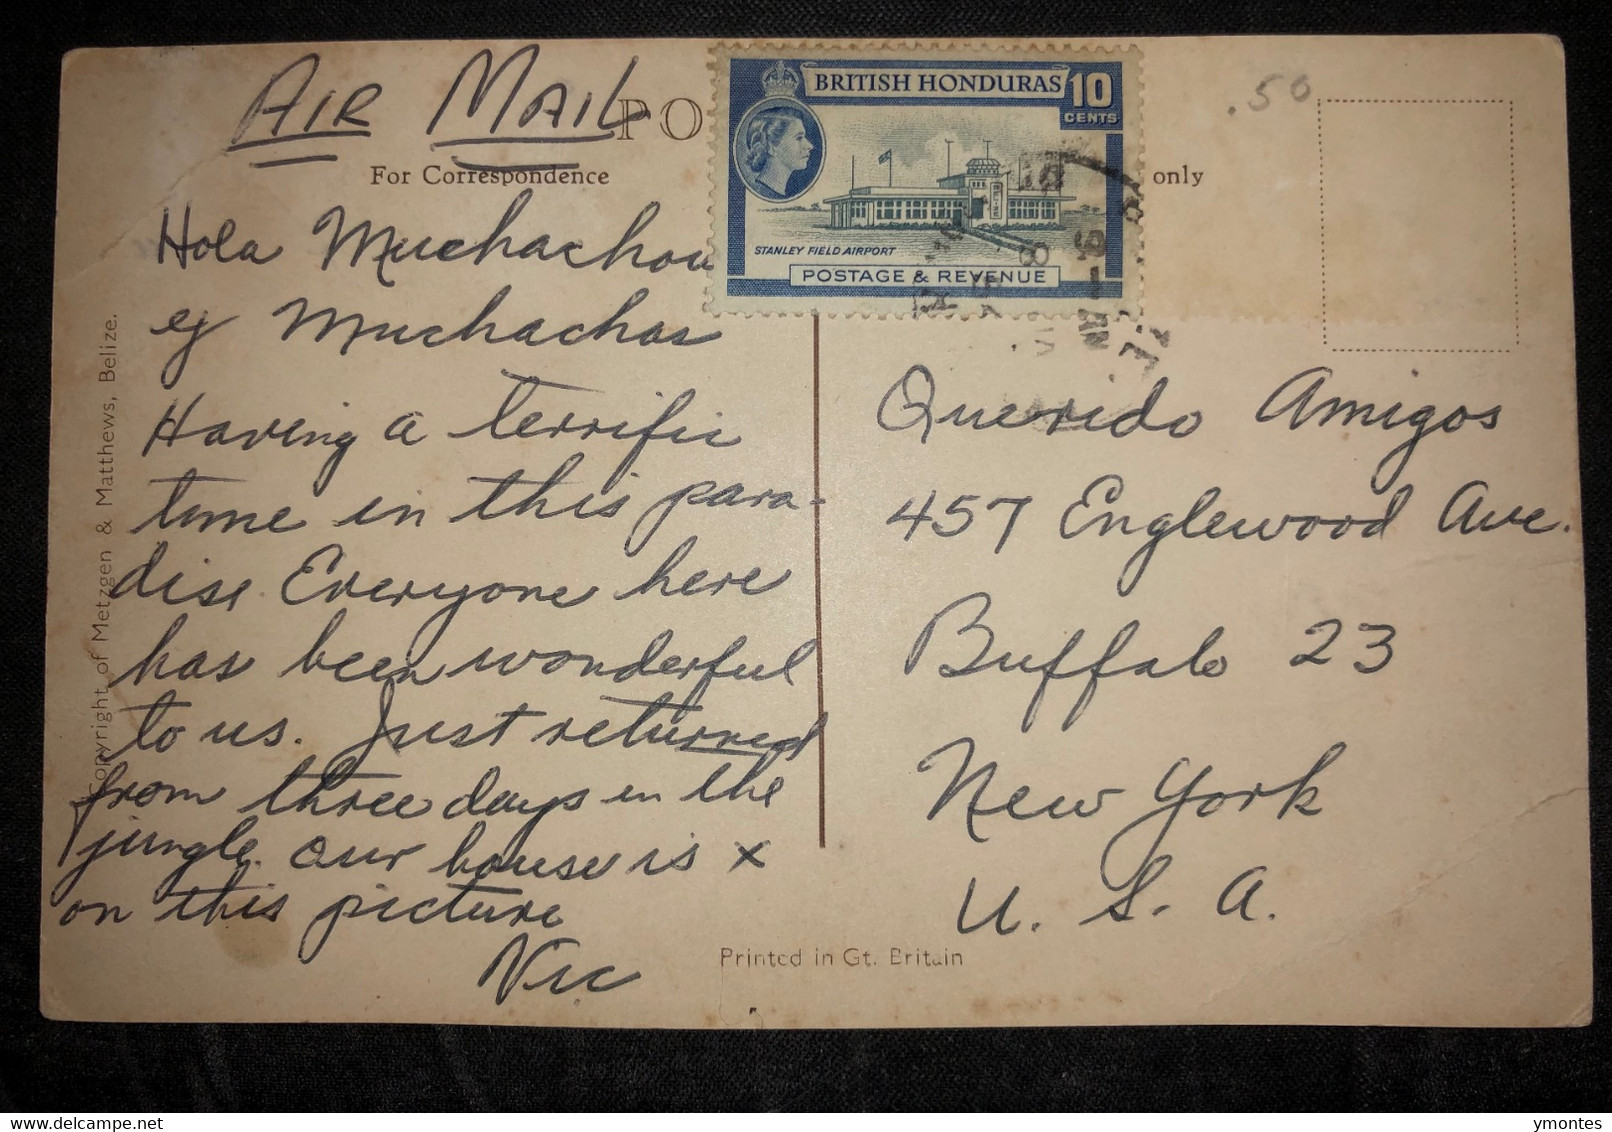 AIR MAIL
PO
.50
For Correspondence
only
BRITISH HONDURAS 10
CENTS
STANLEY FIELD AIRPORT
POSTAGE & REVENUE
Hola Muchachou
ey Muchachas
Having a terrific
time in this para-
dise. Everyone here
has been wonderful
to us. Just returned
from three days in the
jungle. Our house is x
on this picture
Vic
Querido Amigos
457 Englewood Ave.
Buffalo 23
New York
U. S. A.
Copyright of Metzgen & Matthews, Belize.
Printed in Gt. Britain
delcampe.net
ymontes